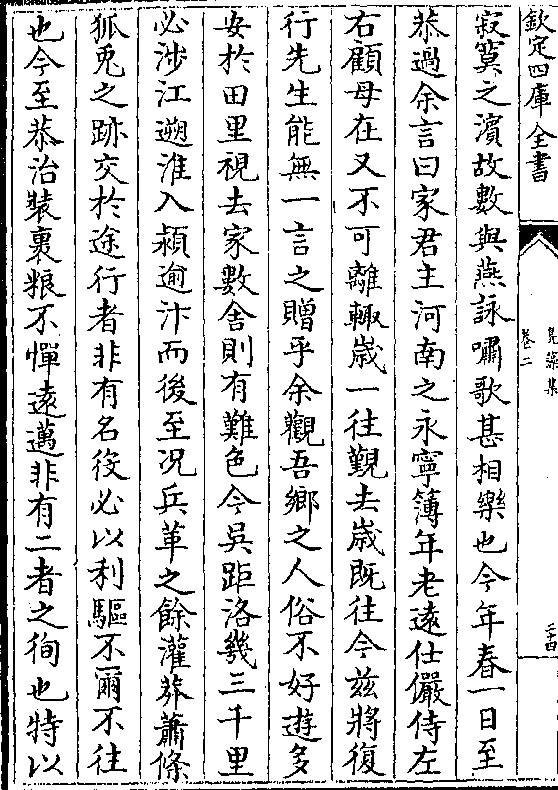 欽定四庫全書
鳧藻集
卷二
二十四
寂寞之濱故數與燕詠嘯歌甚相樂也今年春一日至
恭過余言曰家君主河南之永寧簿年老遠仕儼侍左
右顧母在又不可離輙歳一往覲去歳既往今兹將復
行先生能無一言之贈乎余觀吾鄉之人俗不好遊多
安於田里視去家數舍則有難色今吳距洛幾三千里
必涉江遡淮入潁逾汴而後至况兵革之餘灌莽蕭條
狐兎之跡交於途行者非有名役必以利驅不爾不往
也今至恭治裝裹粮不憚遠邁非有二者之徇也特以